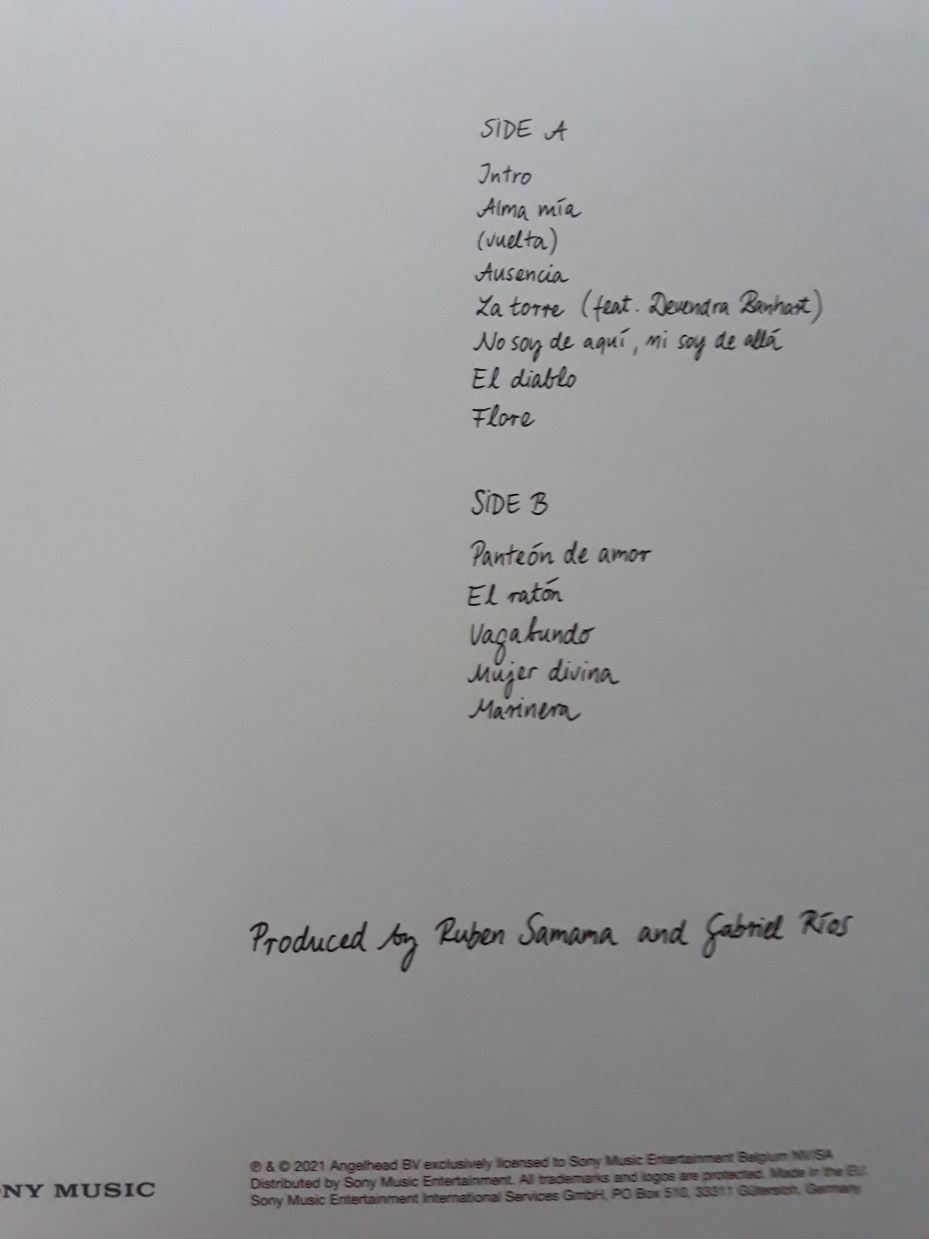 SIDE A
Intro
Alma mía
(vuelta)
Ausencia
La torre (feat. Devendra Banhart)
No soy de aquí, ni soy de allá
El diablo
Flore
SIDE B
Panteón de amor
El ratón
Vagabundo
Mujer divina
Marinera
Produced by Ruben Samama and Gabriel Ríos
℗ & © 2021 Angelhead BV exclusively licensed to Sony Music Entertainment Belgium NV/SA
Distributed by Sony Music Entertainment. All trademarks and logos are protected. Made in the EU.
Sony Music Entertainment International Services GmbH, PO Box 510, 33311 Gütersloh, Germany
NY MUSIC